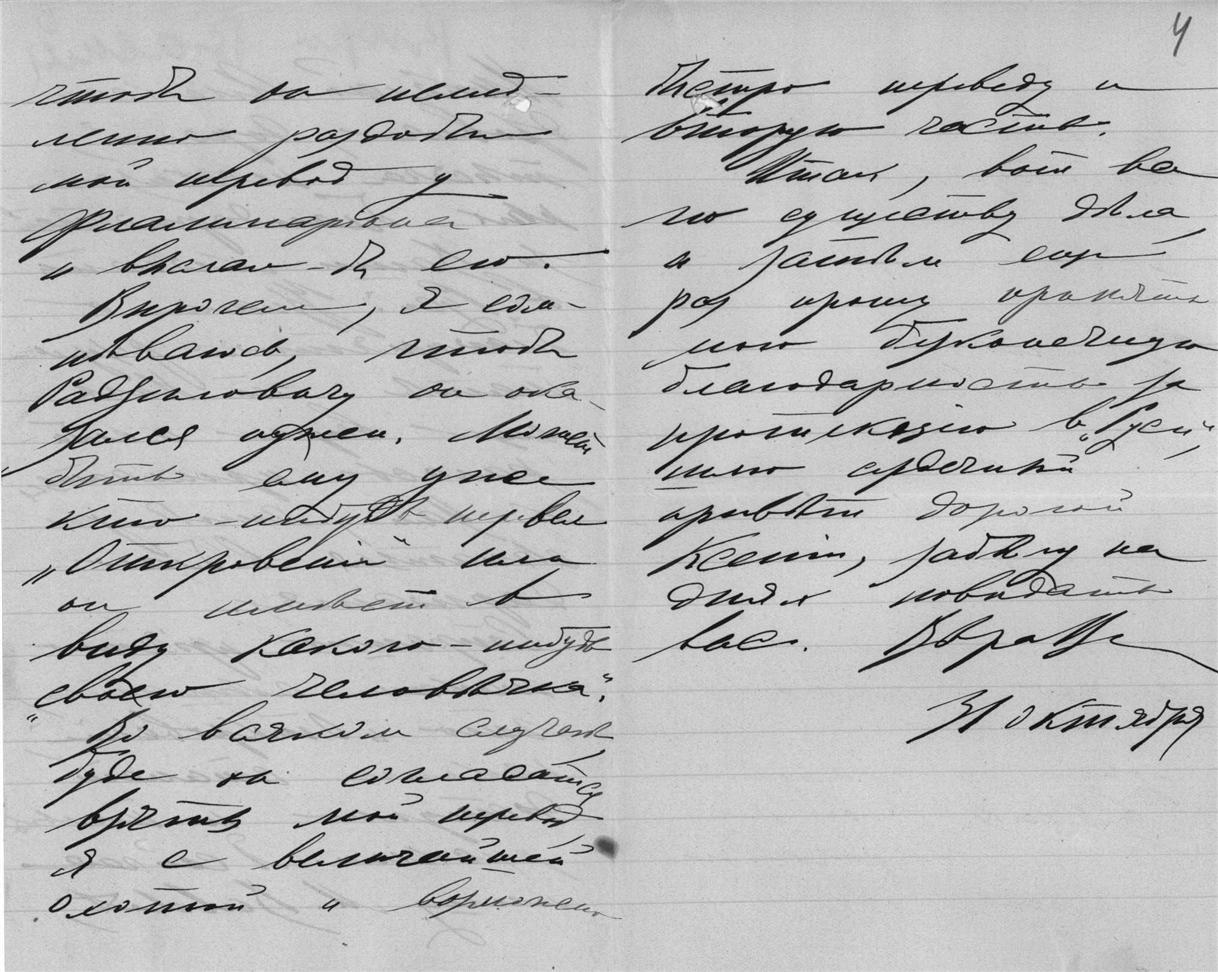 чтобъ он немед-
ленно раздобылъ
мой перевод у
Фиалипарыча
и выслал-бъ его.
Впрочем, я сом-
нѣваюсь, чтобъ
Радзиловичу он ока-
зался нужен. Может
быть ему уже
кто-нибудь перевел
„Откровенія" или
он имѣет в
виду какого-нибудь
„своего человѣчка".
Во всяком случаѣ,
буде он согласится
взять мой перевод,
я с величайшей
охотой и возможно
4
быстро переведу и
вторую часть.
Итак, вот вам
по существу дѣла,
и затѣм еще
раз прошу принять
мою безконечную
благодарность за
протекцію в „Руси",
шлю сердечный
привѣт дорогой
Ксеніи, забѣгу на
днях повидать
вас.
31 октября